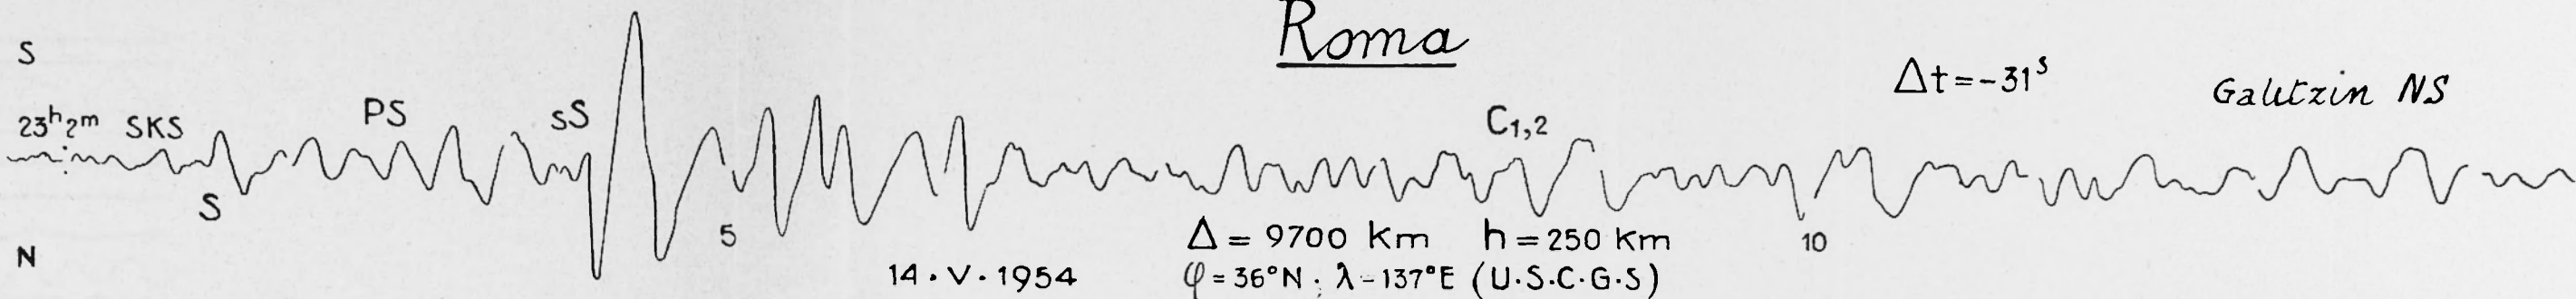 Roma
S
Δt=-31ˢ
Galitzin NS
23ʰ2ᵐ SKS
PS
sS
C₁,₂
S
5
10
N
Δ = 9700 Km h = 250 Km
14 · V · 1954
φ = 36°N · λ - 137°E (U.S.C.G.S)